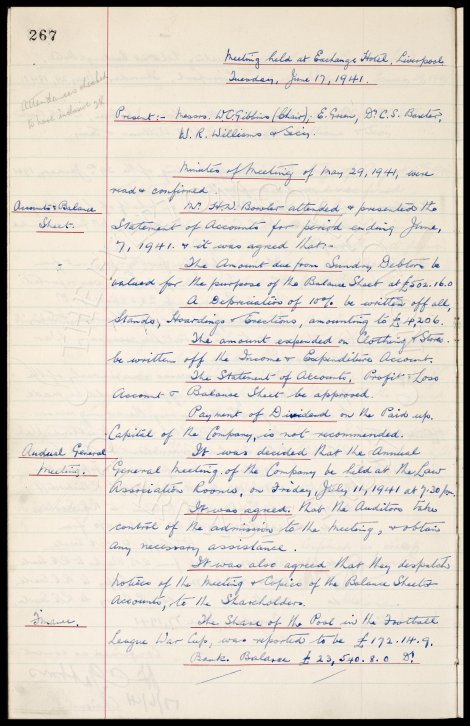 267
Meeting held at Exchange Hotel, Liverpool,
Tuesday, June 17, 1941.
Present:- Messrs. W.C. Gibbins (Chair), E. Green, Dr. C.S. Baxter,
W. R. Williams & Secy.
Minutes of Meeting of May 29, 1941, were
read & confirmed.
Accounts & Balance
Sheet.
Mr. H.W. Bowler attended & presented the
Statement of Accounts for period ending June,
7, 1941. & it was agreed that:-
The Amount due from Sundry Debtors be
valued for the purpose of the Balance Sheet at £502.16.0
A Depreciation of 10% be written off all,
Stands, Hoardings & Erections, amounting to £4,206.
The amount expended on Clothing & Stores
be written off the Income & Expenditure Account.
The Statement of Accounts, Profit & Loss
Account & Balance Sheet be approved.
Payment of Dividend on the Paid up
Capital of the Company, is not recommended.
Annual General
Meeting.
It was decided that the Annual
General Meeting of the Company be held at the Law
Association Rooms, on Friday, July 11, 1941 at 7.30 pm.
It was agreed. that the Auditors take
control of the admission to the Meeting, & obtain
any necessary assistance.
It was also agreed that they despatch
notices of the Meeting & Copies of the Balance Sheet &
Accounts, to the Shareholders.
Finance.
The Share of the Pool in the Football
League War Cup, was reported to be £172.14.9.
Bank Balance £23,540.8.0 Dr.